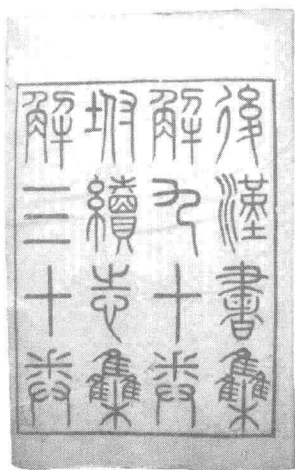 後漢書集
解九十卷
坿續志集
解三十卷